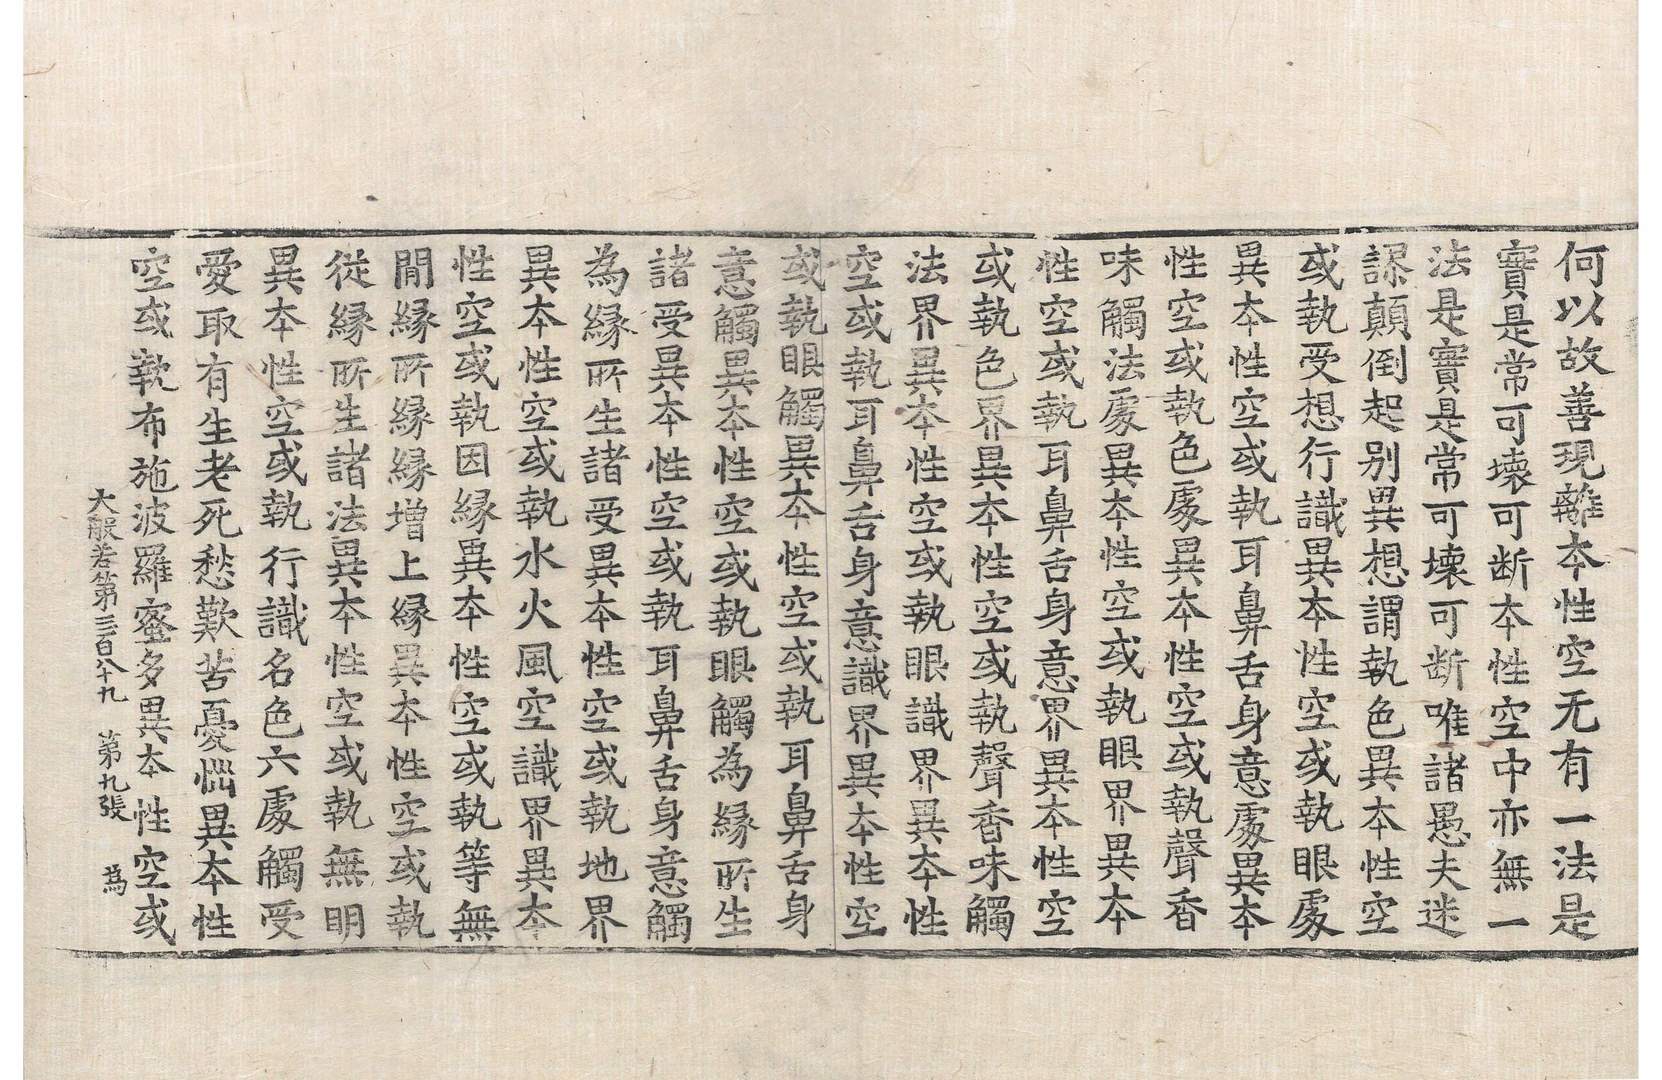 何以故善現離本性空无有一法是
實是常可壞可断本性空中亦無一
法是實是常可壞可断唯諸愚夫迷
謬顛倒起别異想謂執色異本性空
或執受想行識異本性空或執眼處
異本性空或執耳鼻舌身意處異本
性空或執色處異本性空或執聲香
味觸法處異本性空或執眼界異本
性空或執耳鼻舌身意界異本性空
或執色界異本性空或執聲香味觸
法界異本性空或執眼識界異本性
空或執耳鼻舌身意識界異本性空
或執眼觸異本性空或執耳鼻舌身
意觸異本性空或執眼觸為緣所生
諸受異本性空或執耳鼻舌身意觸
為緣所生諸受異本性空或執地界
異本性空或執水火風空識界異本
性空或執因緣異本性空或執等無
間緣所緣緣增上緣異本性空或執
從緣所生諸法異本性空或執無明
異本性空或執行識名色六處觸受
愛取有生老死愁歎苦憂惱異本性
空或執布施波羅蜜多異本性空或
大般若第三百八十九 第九張 為